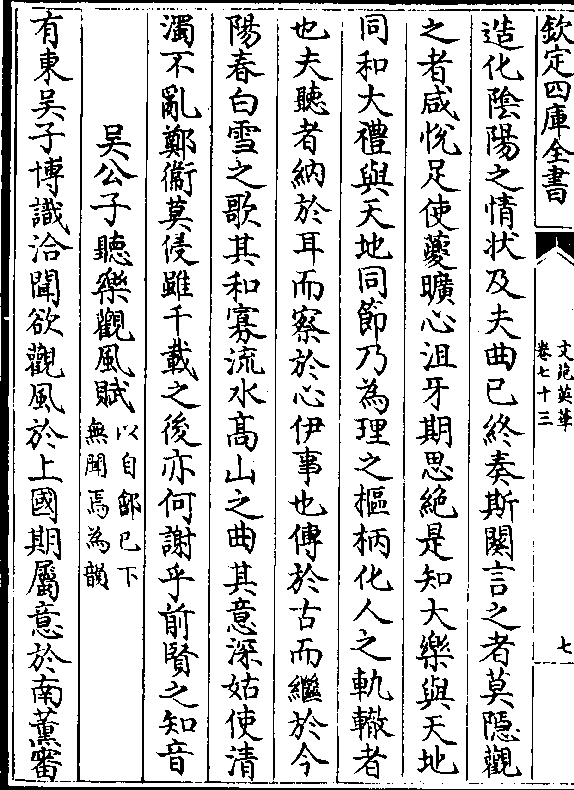 欽定四庫全書
文苑英華
卷七十三
七
造化陰陽之情狀及夫曲已終奏斯闋言之者莫隠觀
之者咸悅足使夔曠心沮牙期思絶是知大樂與天地
同和大禮與天地同節乃為理之樞柄化人之軌轍者
也夫聽者納於耳而察於心伊事也傳於古而繼於今
陽春白雪之歌其和寡流水髙山之曲其意深姑使清
濁不亂鄭衞莫侵雖千載之後亦何謝乎前賢之知音
吴公子聽樂觀風賦
以自鄶已下
無聞焉為韻
有東吴子博識洽聞欲觀風於上國期屬意於南薰審